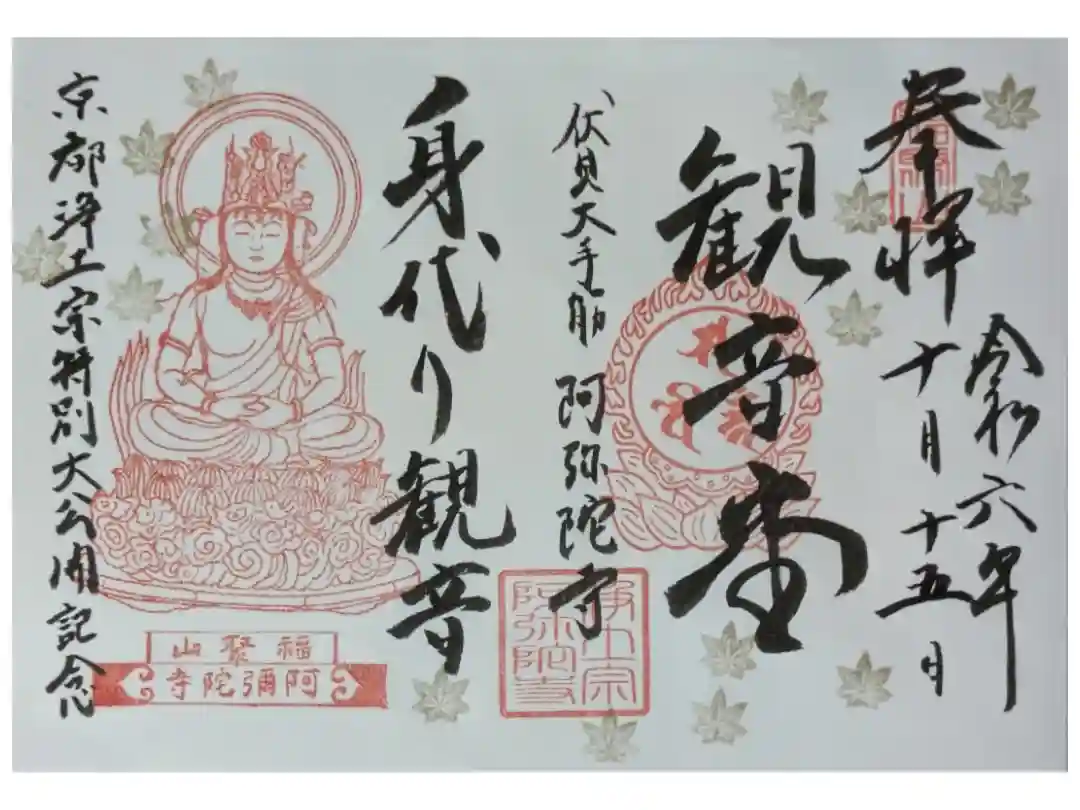 令和六年
奉拝 十月十五日
観音堂
伏見大手筋 阿弥陀寺
身代り観音
京都浄土宗特別大公開記念
浄土宗
阿弥陀寺
福聚山
阿彌陀寺